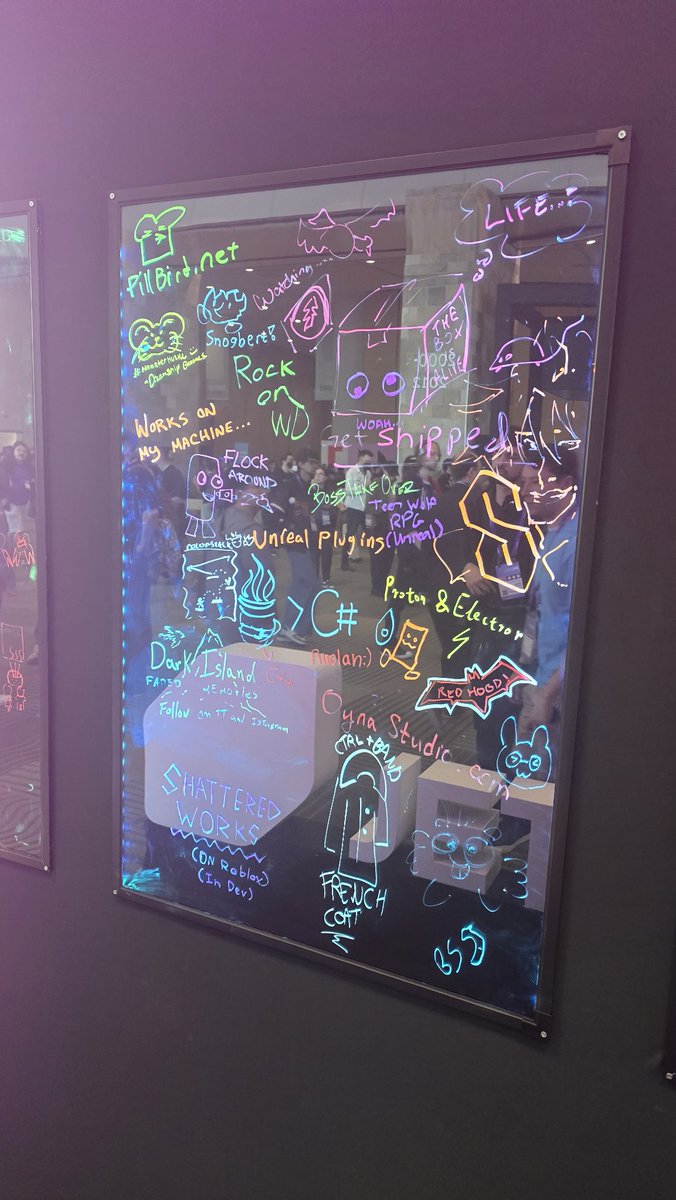 LIFE...
PillBird.net
Watching....
Snogbert!
THE
BOX
Rock
on
WD
WORKS ON
MY MACHINE...
WOAH...
Get shipped
FLOCK
AROUND
BOSS TAKE OVER
Teen Wolf
RPG
(Unreal)
Unreal Plugins
Proton & Electron
> C#
Ruolan:)
Dark Island
C++
FADED
MEMORIES
RED HOODY
Oyna Studio.com
CTRL+BAND
SHATTERED
WORKS
(ON Roblox)
(In Dev)
FRENCH
COAT